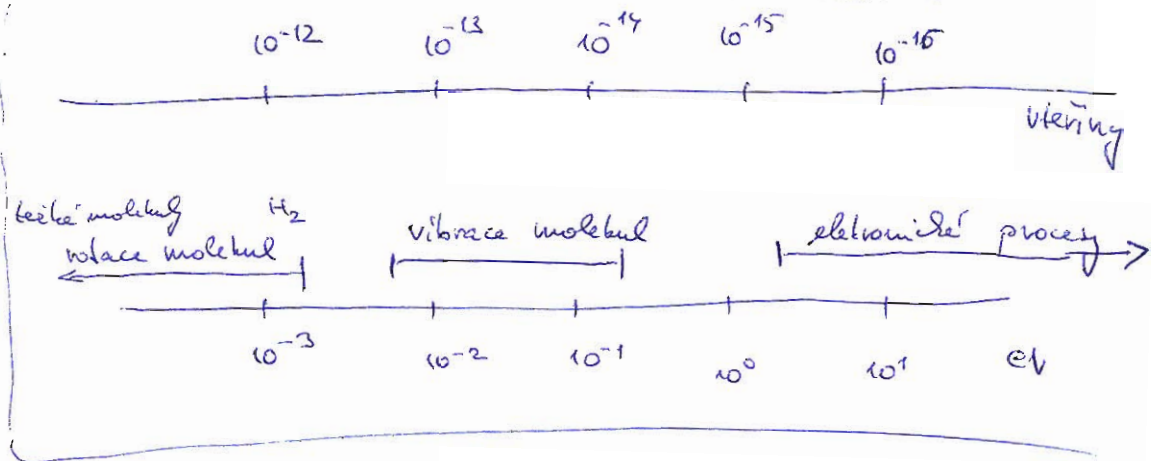 10⁻¹² 10⁻¹³ 10⁻¹⁴ 10⁻¹⁵ 10⁻¹⁶
vteřiny
těžké molekuly H₂
rotace molekul vibrace molekul elektronické procesy
10⁻³ 10⁻² 10⁻¹ 10⁰ 10¹ eV